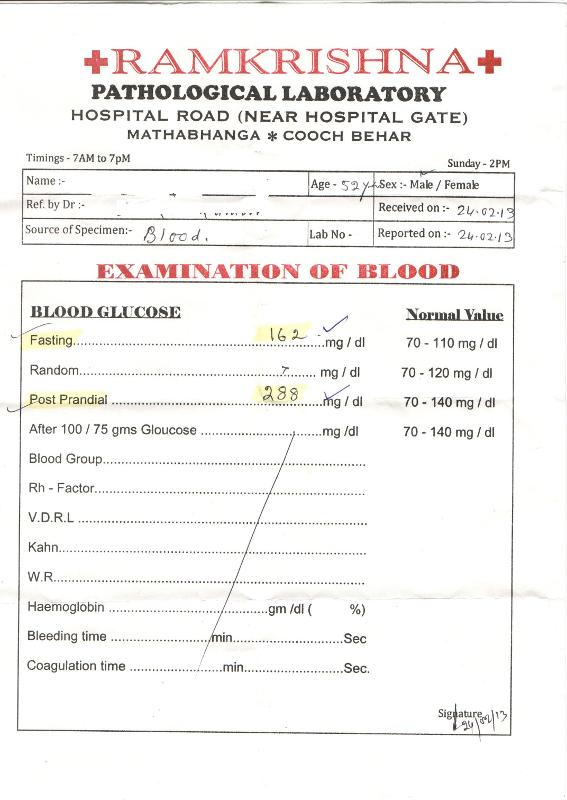 RAMKRISHNA
PATHOLOGICAL LABORATORY
HOSPITAL ROAD (NEAR HOSPITAL GATE)
MATHABHANGA * COOCH BEHAR
Timings - 7AM to 7pM Sunday - 2PM
Name :- Age - 52 y Sex :- Male / Female
Ref. by Dr :- Received on :- 24.02.13
Source of Specimen:- Blood. Lab No - Reported on :- 24.02.13
EXAMINATION OF BLOOD
BLOOD GLUCOSE Normal Value
Fasting.......... 162 ..........mg / dl 70 - 110 mg / dl
Random.......... mg / dl 70 - 120 mg / dl
Post Prandial .......... 288 ..........mg / dl 70 - 140 mg / dl
After 100 / 75 gms Gloucose ..........mg /dl 70 - 140 mg / dl
Blood Group..........
Rh - Factor..........
V.D.R.L ..........
Kahn..........
W.R..........
Haemoglobin ..........gm /dl ( %)
Bleeding time ..........min..........Sec
Coagulation time ..........min..........Sec.
Signature
24/02/13